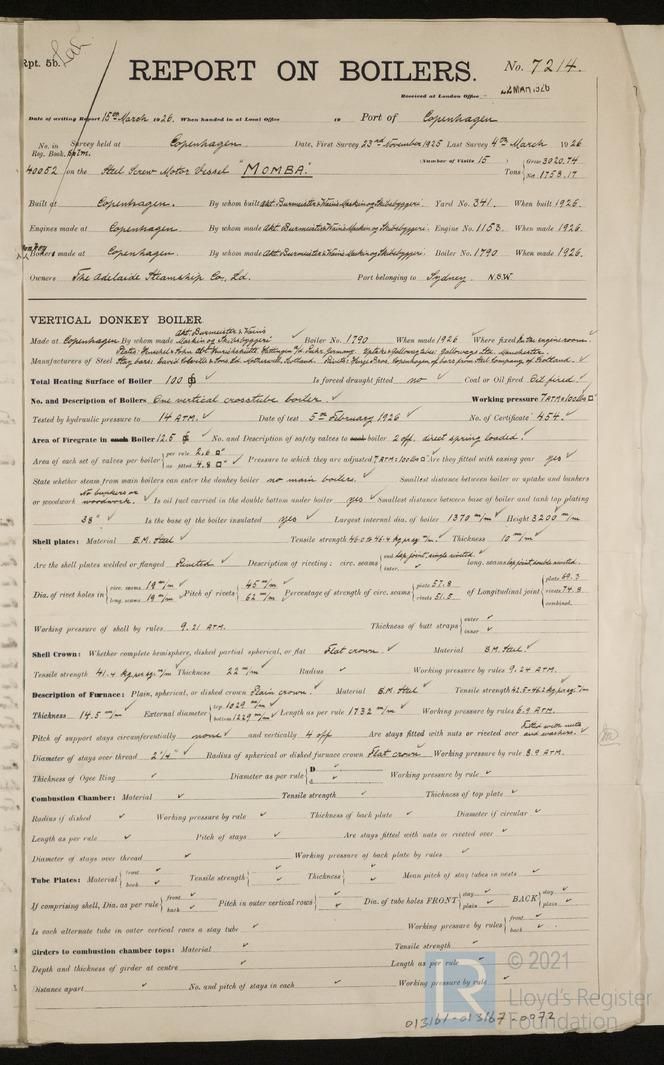 Rpt. 5b.
REPORT ON BOILERS.
No. 7214.
Received at London Office
22 MAR 1926
Date of writing Report 15th March 1926. When handed in at Local Office 19 Port of Copenhagen
No. in Reg. Book. Survey held at Copenhagen. Date, First Survey 23rd November 1925 Last Survey 4th March 1926
(Number of Visits 15 )
40052 on the Steel Screw Motor Vessel "MOMBA". Tons Gross 3020.74 Net 1758.17
Built at Copenhagen. By whom built Akt. Burmeister & Wain's Maskin og Skibsbyggeri. Yard No. 341. When built 1926.
Engines made at Copenhagen. By whom made Akt. Burmeister & Wain's Maskin og Skibsbyggeri. Engine No. 1153. When made 1926.
Donkey Boilers made at Copenhagen. By whom made Akt. Burmeister & Wain's Maskin og Skibsbyggeri. Boiler No. 1790 When made 1926.
Owners The Adelaide Steamship Co., Ld. Port belonging to Sydney N.S.W.
VERTICAL DONKEY BOILER.
Made at Copenhagen By whom made Akt. Burmeister & Wain's Maskin og Skibsbyggeri Boiler No. 1790 When made 1926 Where fixed In the engine room.
Manufacturers of Steel Plates: Henschel & Sohn Abt. Henrichshütte, Hattingen a/d Ruhr, Germany. Uptake & Galloway tubes: Galloways Ltd. Manchester.
Stay bars: David Colville & Sons Ld. Motherwell, Scotland. Rivets: Hinge Bros. Copenhagen of bars from Steel Company of Scotland.
Total Heating Surface of Boiler 100 Is forced draught fitted no Coal or Oil fired Oil fired.
No. and Description of Boilers One vertical crosstube boiler. Working pressure 7 ATM = 100 lbs □"
Tested by hydraulic pressure to 14 ATM. Date of test 5th February 1926 No. of Certificate 454.
Area of Firegrate in each Boiler 12.5 No. and Description of safety valves to each boiler 2 off. direct spring loaded.
Area of each set of valves per boiler per rule 2.6 □" as fitted 4.8 □" Pressure to which they are adjusted 7 ATM = 100 lbs □" Are they fitted with easing gear yes
State whether steam from main boilers can enter the donkey boiler no main boilers. Smallest distance between boiler or uptake and bunkers
or woodwork No bunkers or woodwork. Is oil fuel carried in the double bottom under boiler yes Smallest distance between base of boiler and tank top plating
38" Is the base of the boiler insulated yes Largest internal dia. of boiler 1370 m/m Height 3200 m/m
Shell plates: Material B.M. Steel Tensile strength 46.0 to 46.4 kg. per sq. m/m. Thickness 10 m/m
Are the shell plates welded or flanged Riveted Description of riveting: circ. seams end lap joint, single riveted. inter. long. seams lap joint, double riveted.
Dia. of rivet holes in circ. seams 19 m/m long. seams 19 m/m Pitch of rivets 45 m/m 62 m/m Percentage of strength of circ. seams plate 57.8 rivets 51.5 of Longitudinal joint plate 69.3 rivets 74.8 combined.
Working pressure of shell by rules 9.21 ATM. Thickness of butt straps outer inner
Shell Crown: Whether complete hemisphere, dished partial spherical, or flat Flat crown. Material B.M. Steel.
Tensile strength 41.4 kg. per sq. m/m Thickness 22 m/m Radius Working pressure by rules 9.24 ATM.
Description of Furnace: Plain, spherical, or dished crown Plain crown. Material B.M. Steel Tensile strength 42.5-46.2 kg. per sq. m/m
Thickness 14.5 m/m External diameter top 1029 m/m bottom 1229 m/m Length as per rule 1732 m/m Working pressure by rules 6.9 ATM.
Pitch of support stays circumferentially none and vertically 4 off Are stays fitted with nuts or riveted over Fitted with nuts and washers.
Diameter of stays over thread 2 1/4" Radius of spherical or dished furnace crown Flat crown Working pressure by rule 8.9 ATM.
Thickness of Ogee Ring Diameter as per rule D d Working pressure by rule
Combustion Chamber: Material Tensile strength Thickness of top plate
Radius if dished Working pressure by rule Thickness of back plate Diameter if circular
Length as per rule Pitch of stays Are stays fitted with nuts or riveted over
Diameter of stays over thread Working pressure of back plate by rules
Tube Plates: Material front back Tensile strength Thickness Mean pitch of stay tubes in nests
If comprising shell, Dia. as per rule front back Pitch in outer vertical rows Dia. of tube holes FRONT stay plain BACK stay plain
Is each alternate tube in outer vertical rows a stay tube Working pressure by rules front back
Girders to combustion chamber tops: Material Tensile strength
Depth and thickness of girder at centre Length as per rule
Distance apart No. and pitch of stays in each Working pressure by rule
LR
© 2021
Lloyd's Register
Foundation
013161-013167-0072